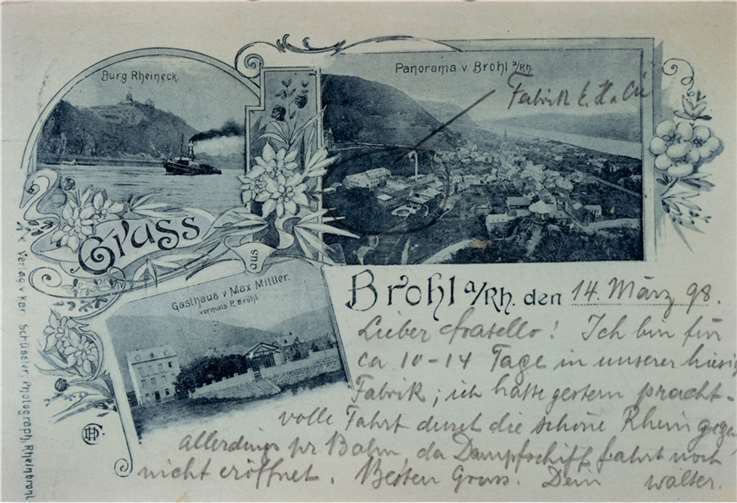 Burg Rheineck.
Panorama v Brohl a/Rh.
Fabrik
Gruss
aus
Gasthaus v Max Mittler.
vormals P. Brohl.
Brohl a/Rh. den 14. März 98.
Lieber Fratello! Ich bin für
ca 10-14 Tage in unserer hiesig
Fabrik; ich hatte gestern pracht-
volle Fahrt durch die schöne Rheingegen
allerdings pr Bahn, da Dampfschiff fahrt noch
nicht eröffnet. Besten Gruss. Dein Walter.
Verlag v Schüssler, Photograph, Rheinbrohl